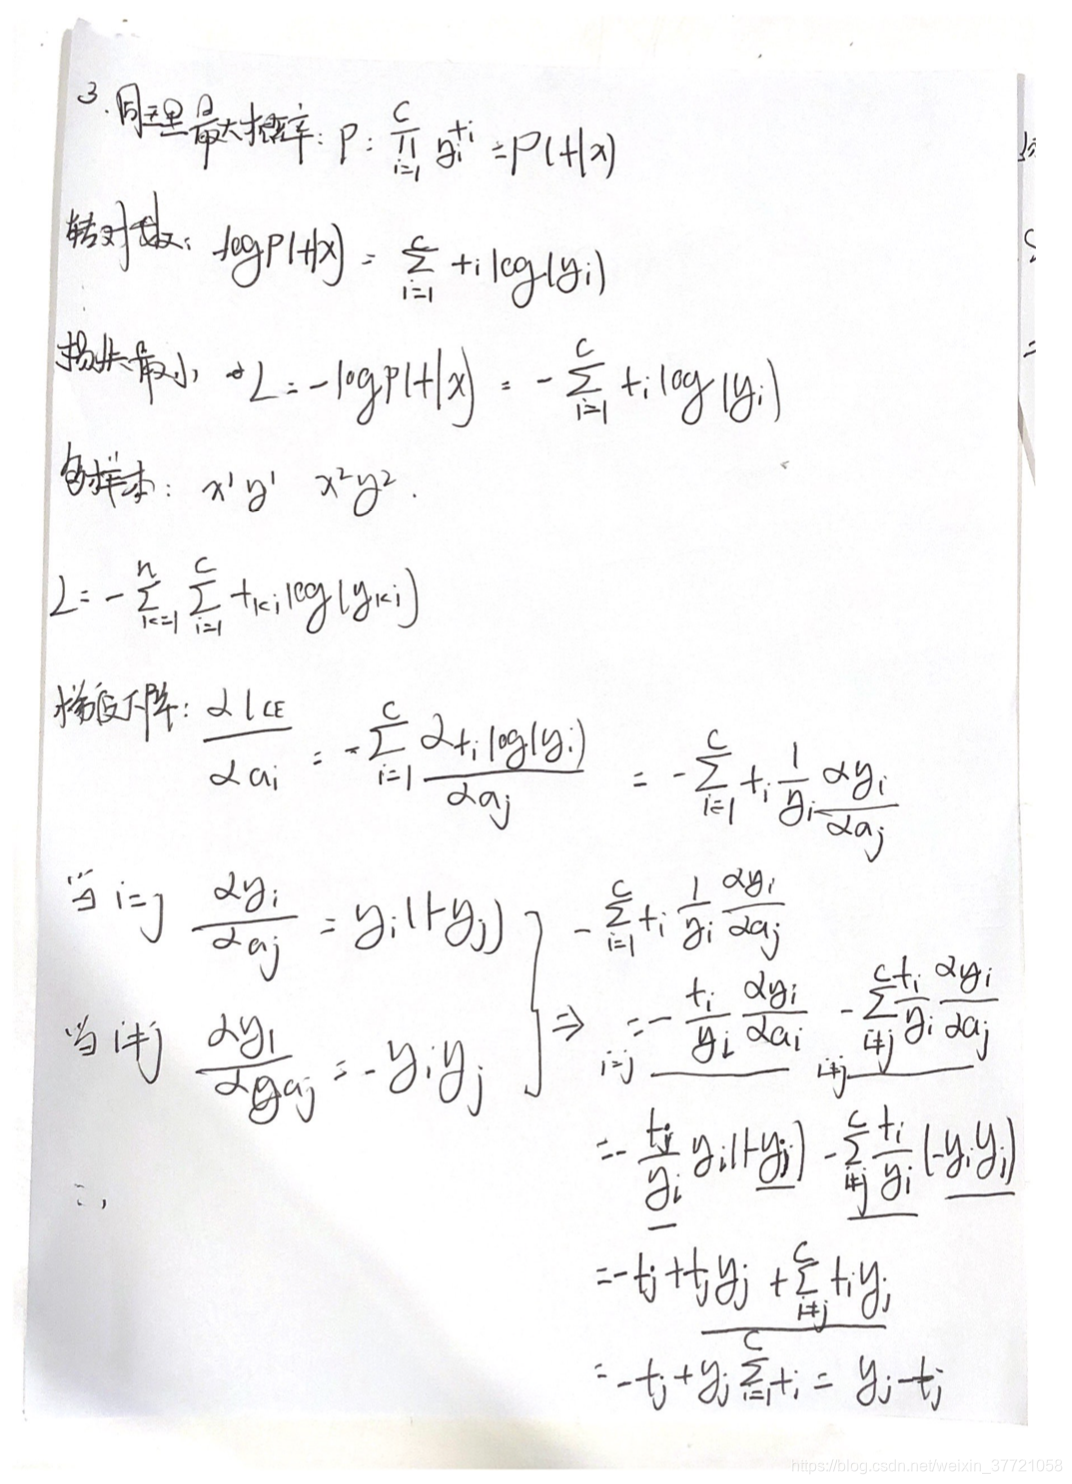 3. 同理最大概率: P: ∏_{i=1}^{C} y_i^{t_i} = P(t|x)
转对数: logP(t|x) = ∑_{i=1}^{C} t_i log(y_i)
损失最小 → L = -logP(t|x) = -∑_{i=1}^{C} t_i log(y_i)
样本: x¹y¹ x²y².
L = -∑_{k=1}^{n} ∑_{i=1}^{C} t_{ki} log(y_{ki})
梯度下降: ∂l_{CE}/∂a_i = -∑_{i=1}^{C} ∂t_i log(y_i)/∂a_j = -∑_{i=1}^{C} t_i 1/y_i ∂y_i/∂a_j
当 i=j ∂y_i/∂a_j = y_i(1-y_j)
当 i≠j ∂y_i/∂a_j = -y_i y_j
⇒ -∑_{i=1}^{C} t_i 1/y_i ∂y_i/∂a_j
i=j = -t_i/y_i ∂y_i/∂a_i i≠j -∑_{i≠j}^{C} t_i/y_i ∂y_i/∂a_j
= -t_j/y_i y_i(1-y_j) -∑_{i≠j}^{C} t_i/y_i (-y_i y_j)
= -t_j + t_j y_j + ∑_{i≠j}^{C} t_i y_j
= -t_j + y_j ∑_{i=1}^{C} t_i = y_j - t_j
https://blog.csdn.net/weixin_37721058